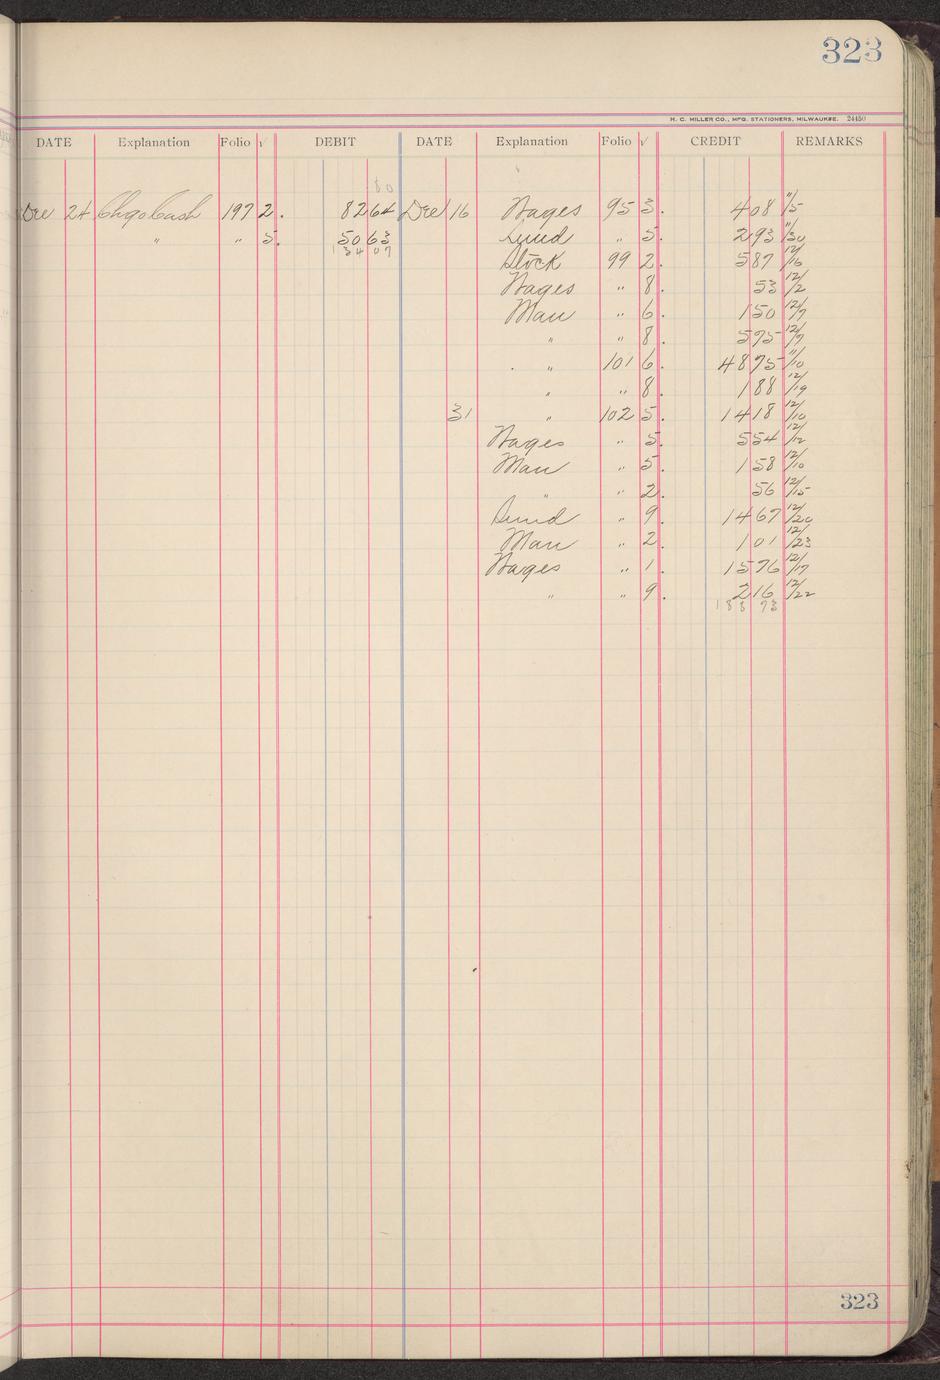 323
H. C. MILLER CO., MFG. STATIONERS, MILWAUKEE. 24450
DATE Explanation Folio √ DEBIT DATE Explanation Folio √ CREDIT REMARKS
80
Dec 24 Chgo Cash 197 2. 82 64 Dec 16 Wages 95 3. 4 08 11/5
" " 5. 50 63 Sund " 5. 2 93 11/30
134 07 Stock 99 2. 5 87 12/16
Wages " 8. 53 12/2
Man " 6. 1 50 12/7
" " 8. 5 95 12/9
" 101 6. 48 75 11/10
" " 8. 1 88 12/19
31 " 102 5. 14 18 12/10
Wages " 5. 5 54 12/12
Man " 5. 1 58 12/10
" " 2. 56 12/15
Sund " 9. 14 67 12/20
Man " 2. 1 01 12/23
Wages " 1. 15 76 12/17
" " 9. 2 16 12/22
73
323